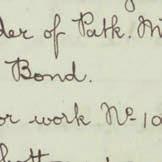 der of Path. M
Bond.
or work No. 10